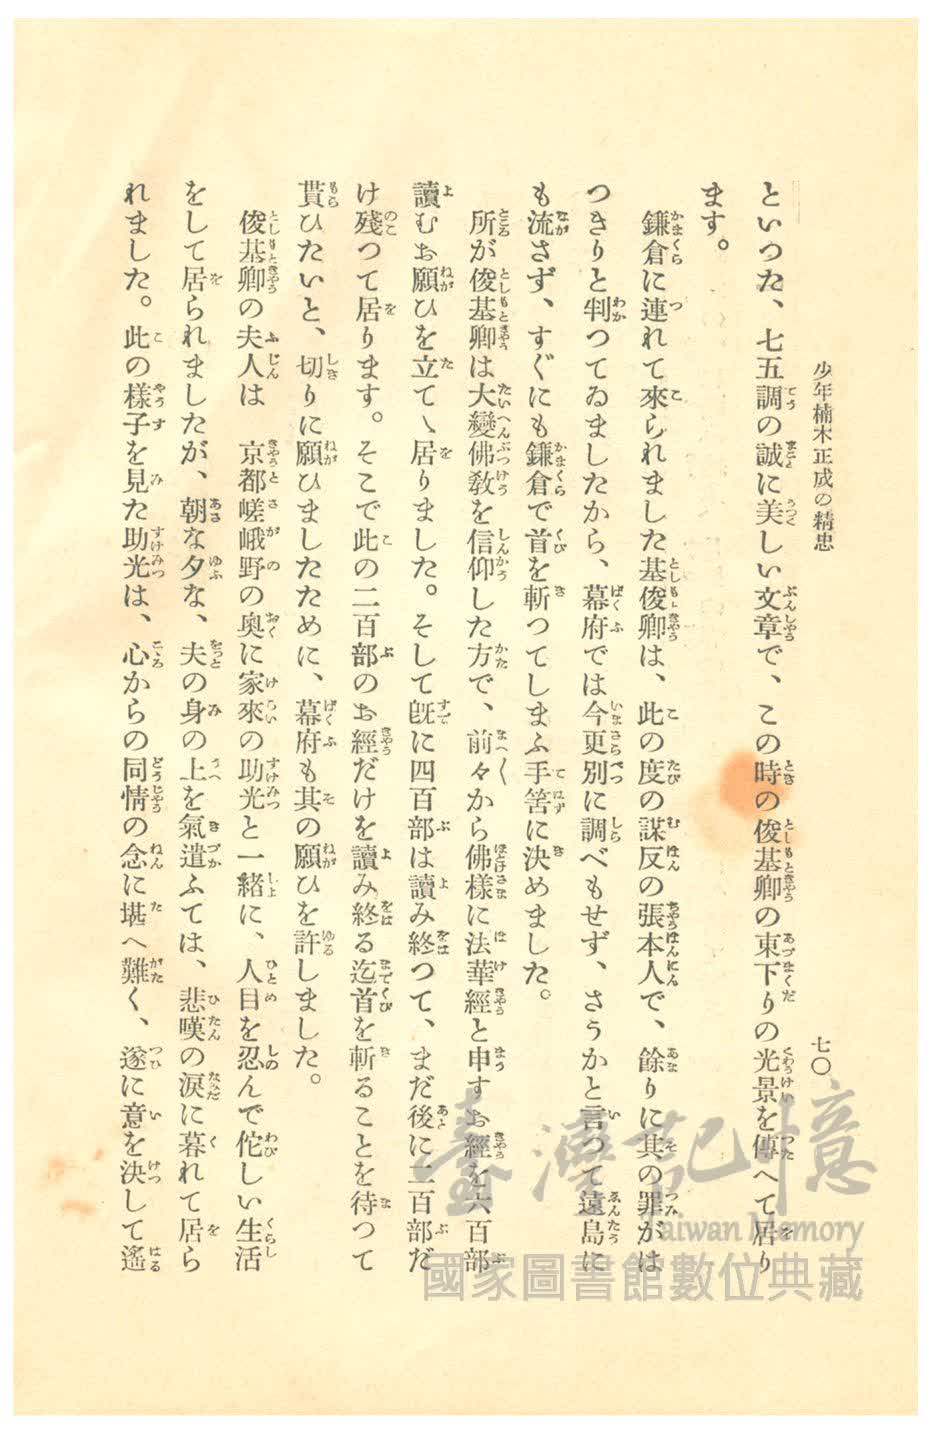 少年楠木正成の精忠
七〇
といつた、七五調の誠に美しい文章で、この時の俊基卿の東下りの光景を傳へて居り
ます。
鎌倉に連れて來られました基俊卿は、此の度の謀反の張本人で、餘りに其の罪がは
つきりと判つてゐましたから、幕府では今更別に調べもせず、さうかと言つて遠島に
も流さず、すぐにも鎌倉で首を斬つてしまふ手筈に決めました。
所が俊基卿は大變佛敎を信仰した方で、前々から佛様に法華經と申すお經を六百部
讀むお願ひを立てゝ居りました。そして旣に四百部は讀み終つて、まだ後に二百部だ
け殘つて居ります。そこで此の二百部のお經だけを讀み終る迄首を斬ることを待つて
貰ひたいと、切りに願ひましたために、幕府も其の願ひを許しました。
俊基卿の夫人は　京都嵯峨野の奥に家來の助光と一緒に、人目を忍んで佗しい生活
をして居られましたが、朝な夕な、夫の身の上を氣遣ふては、悲嘆の淚に暮れて居ら
れました。此の様子を見た助光は、心からの同情の念に堪へ難く、遂に意を決して遙
臺灣記憶
Taiwan Memory
國家圖書館數位典藏